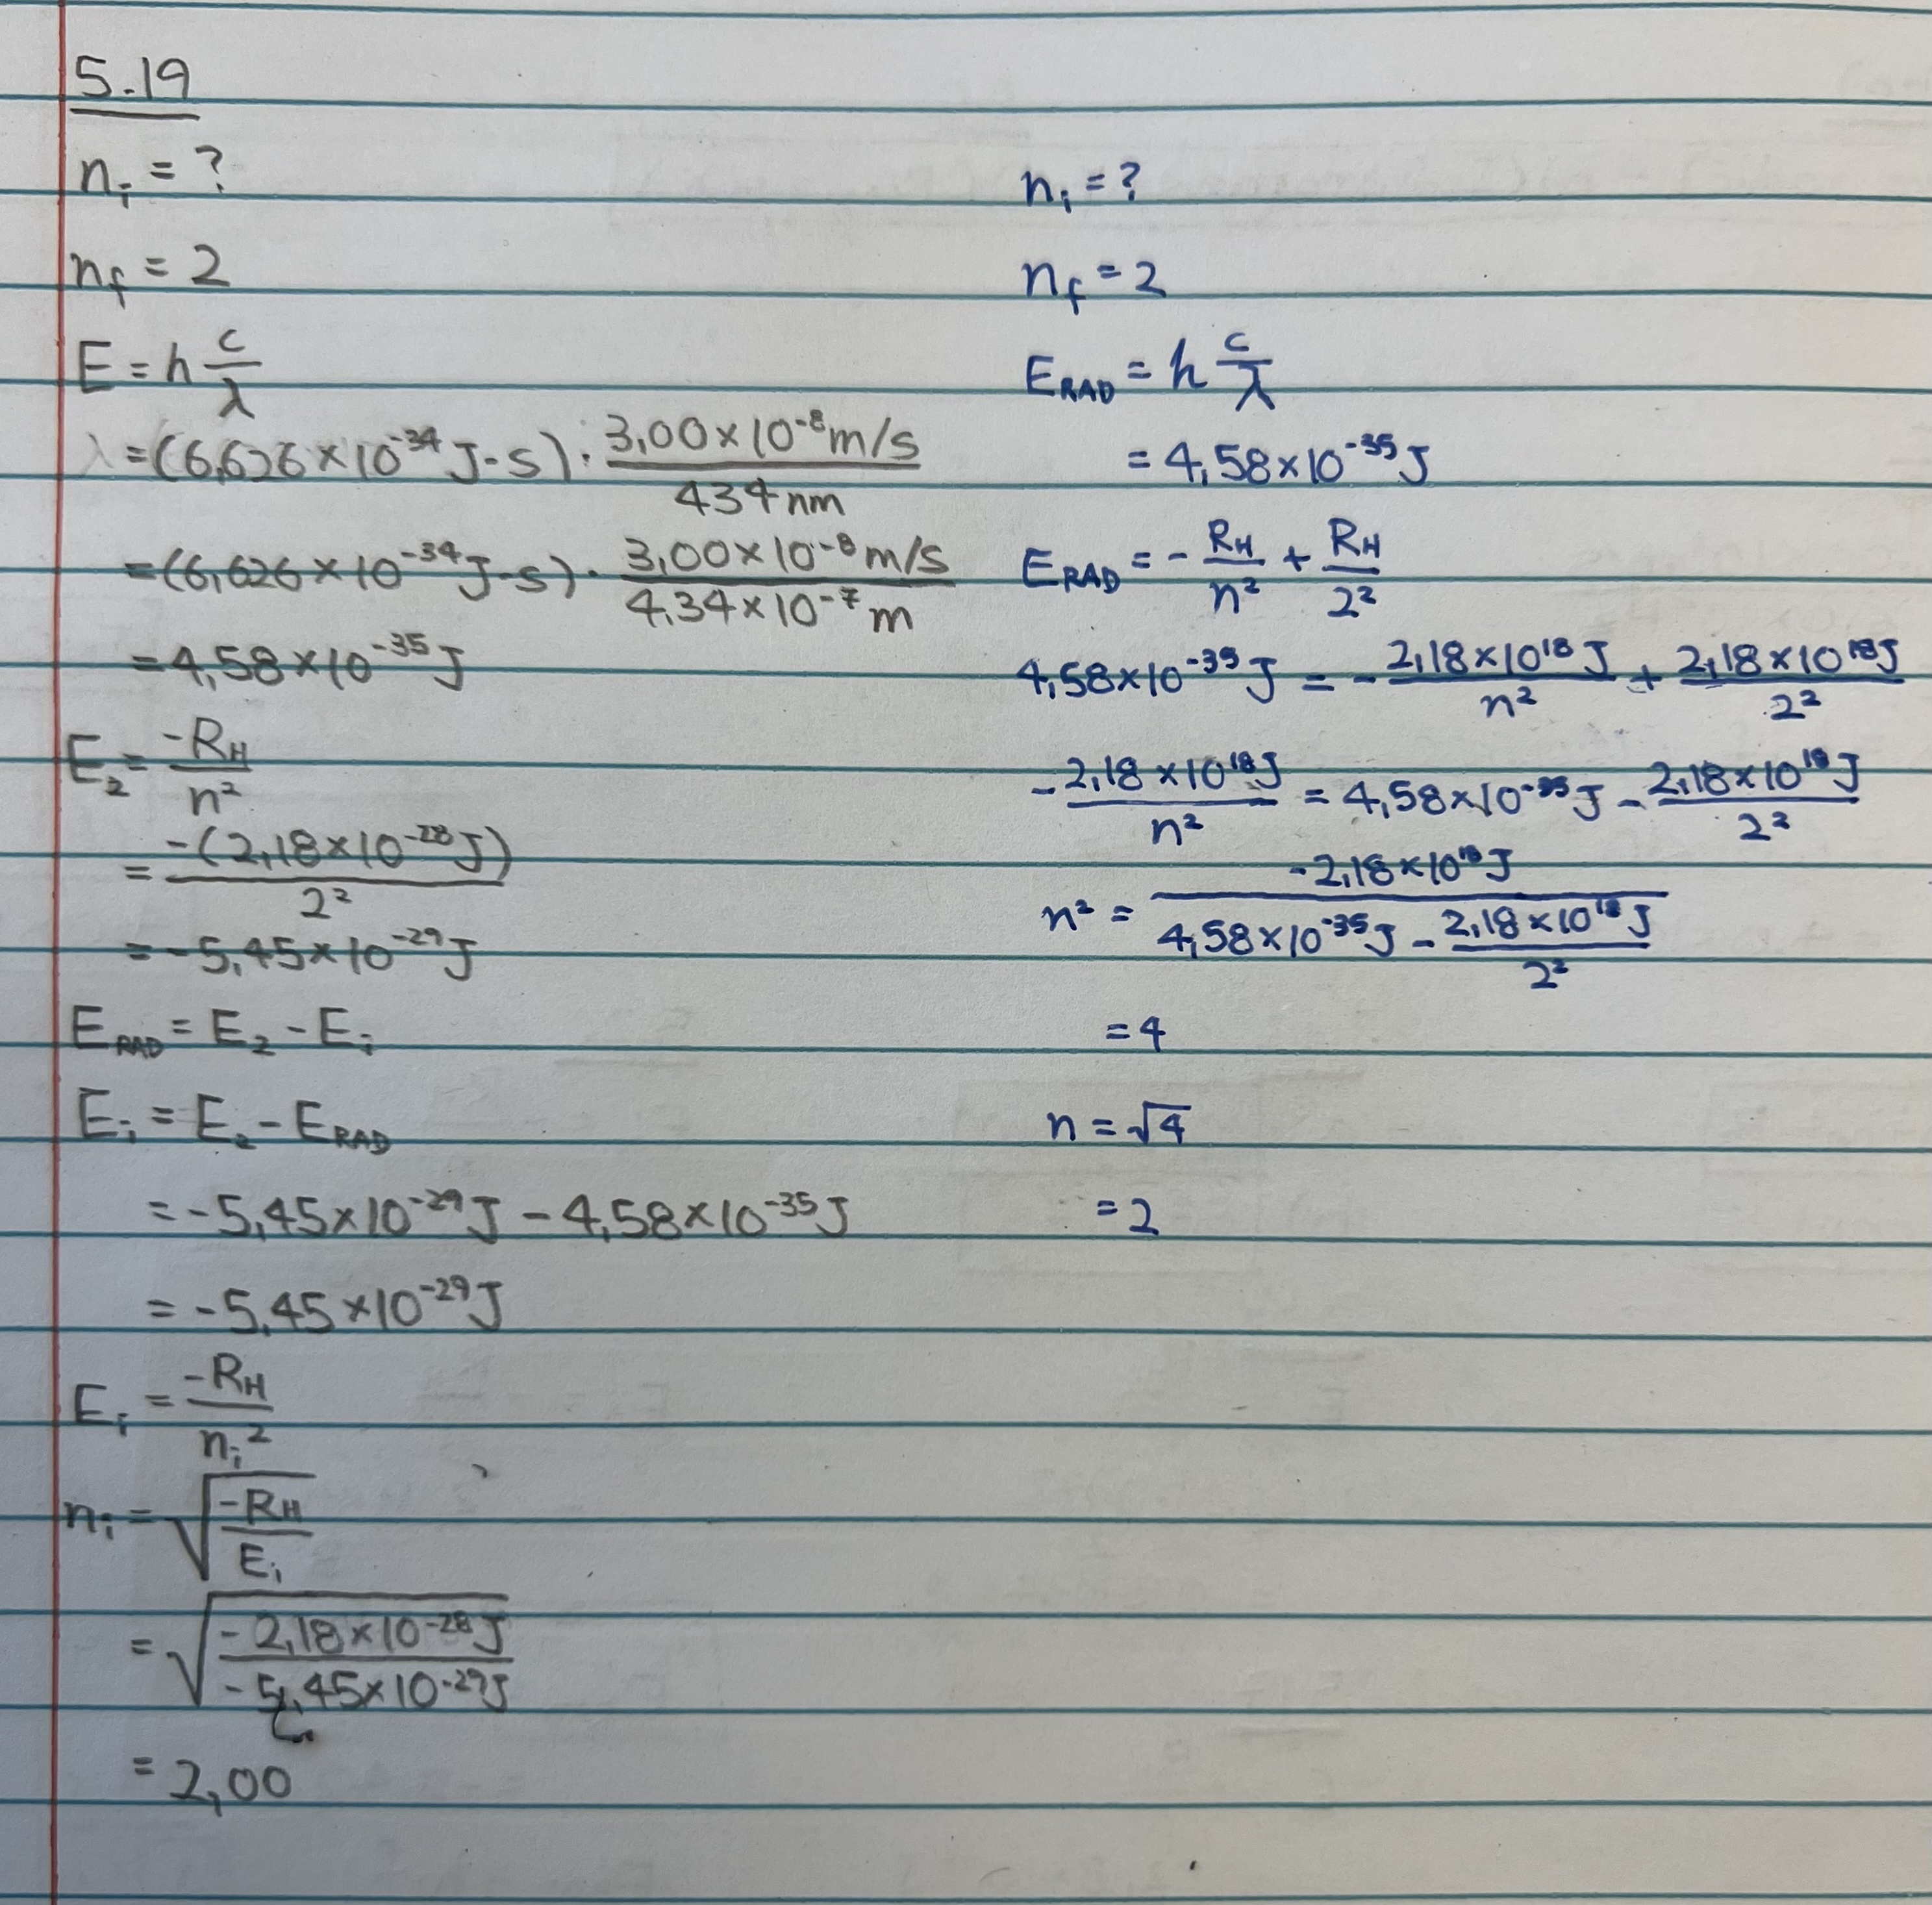 5.19
nᵢ = ?
n_f = 2
E = h c/λ
λ = (6,626 × 10⁻³⁴ J-s) · 3,00 × 10⁻⁸ m/s / 434 nm
= (6,626 × 10⁻³⁴ J-s) · 3,00 × 10⁻⁸ m/s / 4,34 × 10⁻⁷ m
= 4,58 × 10⁻³⁵ J
E₂ = -R_H / n²
= -(2,18 × 10⁻²⁸ J) / 2²
= -5,45 × 10⁻²⁹ J
E_RAD = E₂ - Eᵢ
Eᵢ = E₂ - E_RAD
= -5,45 × 10⁻²⁹ J - 4,58 × 10⁻³⁵ J
= -5,45 × 10⁻²⁹ J
Eᵢ = -R_H / nᵢ²
nᵢ = √(-R_H / Eᵢ)
= √(-2,18 × 10⁻²⁸ J / -5,45 × 10⁻²⁹ J)
= 2,00
nᵢ = ?
n_f = 2
E_RAD = h c/λ
= 4,58 × 10⁻³⁵ J
E_RAD = - R_H / n² + R_H / 2²
4,58 × 10⁻³⁵ J = - 2,18 × 10¹⁸ J / n² + 2,18 × 10¹⁸ J / 2²
- 2,18 × 10¹⁸ J / n² = 4,58 × 10⁻³⁵ J - 2,18 × 10¹⁸ J / 2²
n² = -2,18 × 10¹⁸ J / (4,58 × 10⁻³⁵ J - 2,18 × 10¹⁸ J / 2²)
= 4
n = √4
= 2